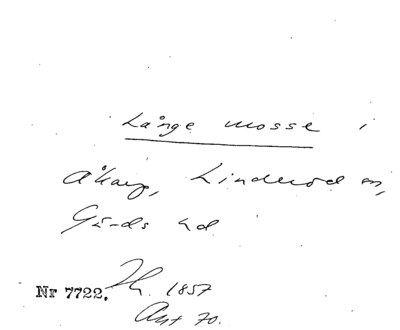 Långe mosse i
Åkarp, Linderöd sn,
Gärds hd
Nr 7722. Th. 1857
Ant 70.